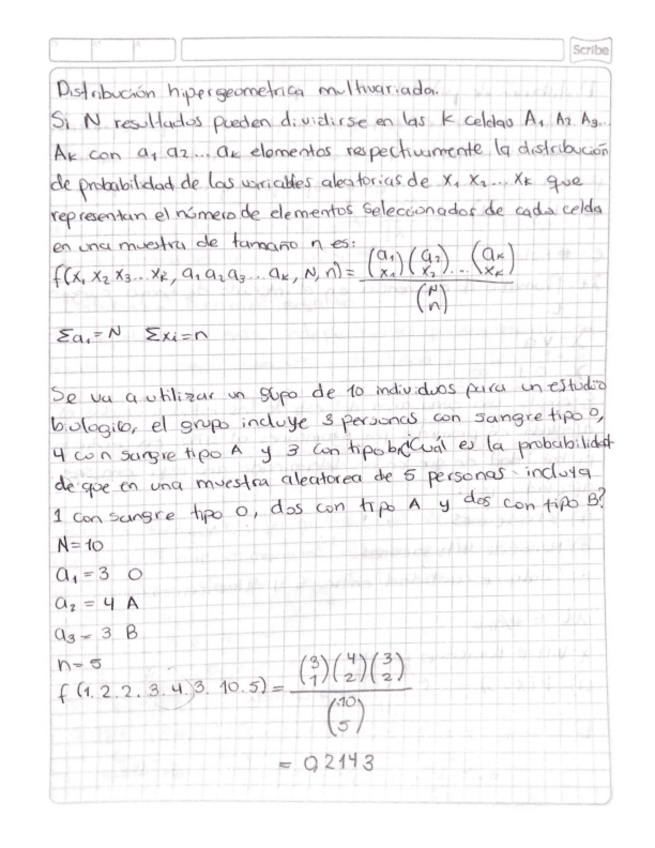 Scribe
Distribución hipergeometrica multivariada.
Si N resultados pueden dividirse en las k celdas A₁ A₂ A₃...
Aₖ con a₁ a₂... aₖ elementos respectivamente la distribución
de probabilidad de las variables aleatorias de x₁ x₂... xₖ que
representan el número de elementos seleccionados de cada celda
en una muestra de tamaño n es:
f(x₁ x₂ x₃... xₖ, a₁ a₂ a₃... aₖ, N, n) = (a₁ x₁)(a₂ x₂)...(aₖ xₖ) / (N n)
Σa₁=N Σxi=n
Se va a utilizar un grupo de 10 individuos para un estudio
biologico, el grupo incluye 3 personas con sangre tipo O,
4 con sangre tipo A y 3 con tipo b ¿Cuál es la probabilidad
de que en una muestra aleatorea de 5 personas incluya
1 con sangre tipo O, dos con tipo A y dos con tipo B?
N=10
a₁ = 3 O
a₂ = 4 A
a₃ = 3 B
n= 5
f (1.2.2.3.4.3.10.5) = (3 1)(4 2)(3 2) / (10 5)
= 0,2143